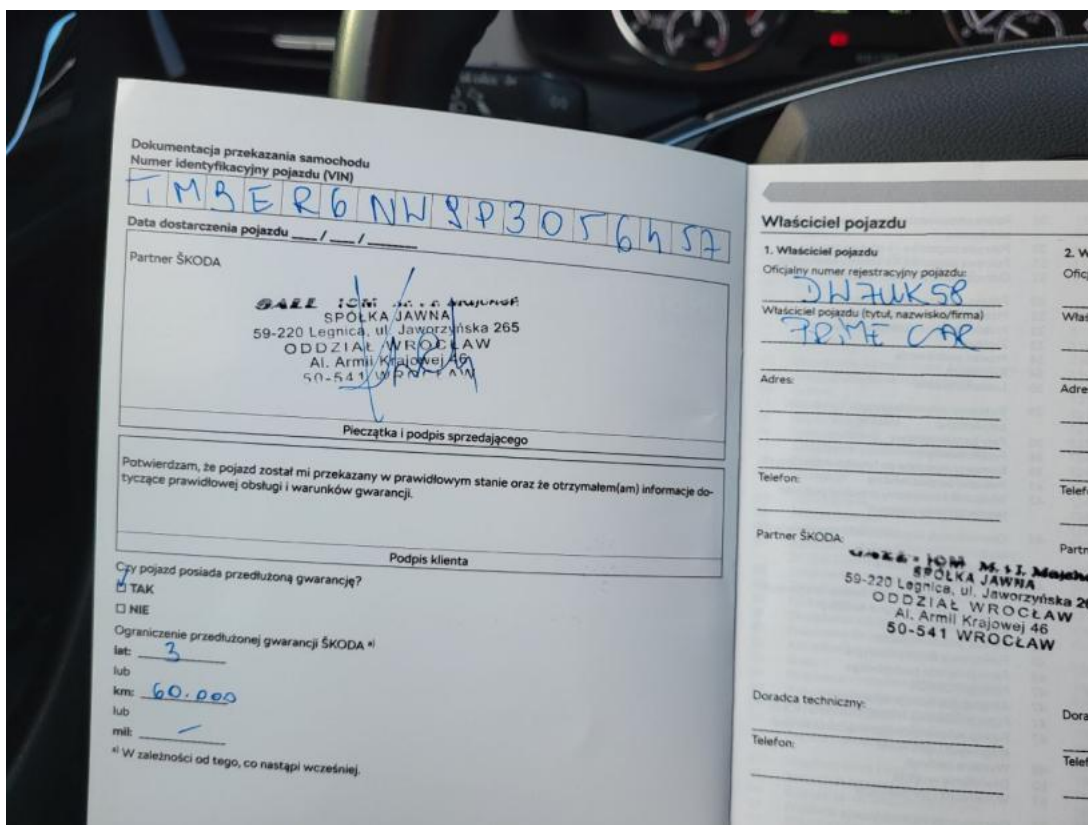 Dokumentacja przekazania samochodu
Numer identyfikacyjny pojazdu (VIN)
TMBER6NW9P3056457
Data dostarczenia pojazdu ___ / ___ / ___
Partner ŠKODA
SPÓŁKA JAWNA
59-220 Legnica, ul. Jaworzyńska 265
ODDZIAŁ WROCŁAW
Al. Armii Krajowej 46
50-541 WROCŁAW
Pieczątka i podpis sprzedającego
Potwierdzam, że pojazd został mi przekazany w prawidłowym stanie oraz że otrzymałem(am) informacje do-
tyczące prawidłowej obsługi i warunków gwarancji.
Podpis klienta
Czy pojazd posiada przedłużoną gwarancję?
TAK
NIE
Ograniczenie przedłużonej gwarancji ŠKODA a)
lat: 3
lub
km: 60.000
lub
mil: –
a) W zależności od tego, co nastąpi wcześniej.
Właściciel pojazdu
1. Właściciel pojazdu
Oficjalny numer rejestracyjny pojazdu:
DW7UK58
Właściciel pojazdu (tytuł, nazwisko/firma)
PRIME CAR
Adres:
Telefon:
Partner ŠKODA:
SPÓŁKA JAWNA
59-220 Legnica, ul. Jaworzyńska 26
ODDZIAŁ WROCŁAW
Al. Armii Krajowej 46
50-541 WROCŁAW
Doradca techniczny:
Telefon:
2. W
Ofic
Właś
Adre
Telef
Partn
Dora
Telef